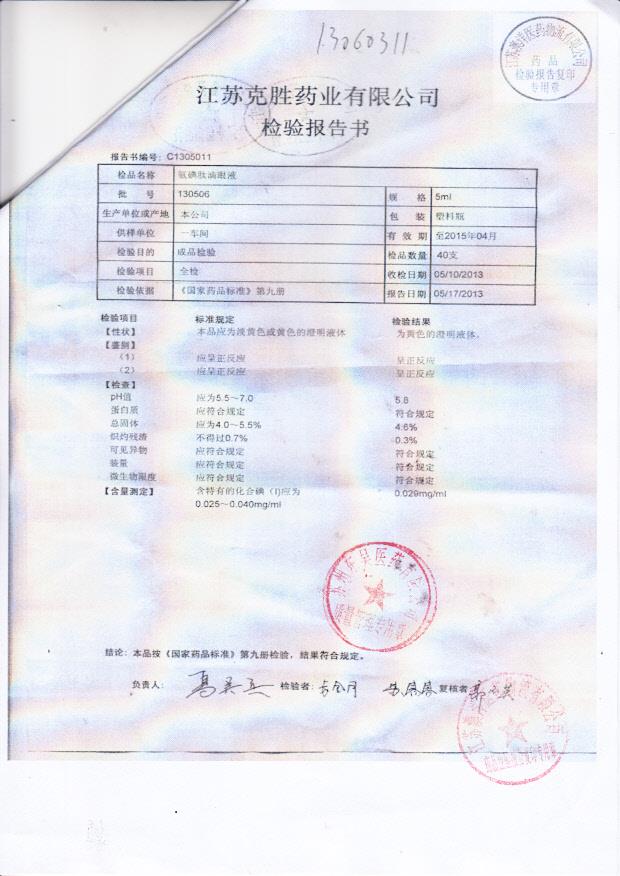 13060311
药品
检验报告复印
专用章
江苏克胜药业有限公司
检验报告书
报告书编号：C1305011
检品名称 氨碘肽滴眼液
批 号 130506 规 格 5ml
生产单位或产地 本公司 包 装 塑料瓶
供样单位 一车间 有 效 期 至2015年04月
检验目的 成品检验 检品数量 40支
检验项目 全检 收检日期 05/10/2013
检验依据 《国家药品标准》第九册 报告日期 05/17/2013
检验项目 标准规定 检验结果
【性状】 本品应为淡黄色或黄色的澄明液体 为黄色的澄明液体。
【鉴别】
（1） 应呈正反应 呈正反应
（2） 应呈正反应 呈正反应
【检查】
pH值 应为5.5～7.0 5.8
蛋白质 应符合规定 符合规定
总固体 应为4.0～5.5% 4.6%
炽灼残渣 不得过0.7% 0.3%
可见异物 应符合规定 符合规定
装量 应符合规定 符合规定
微生物限度 应符合规定 符合规定
【含量测定】 含特有的化合碘（I)应为 0.029mg/ml
0.025～0.040mg/ml
苏州东吴医药有限公司
质量管理专用章
结论：本品按《国家药品标准》第九册检验，结果符合规定。
负责人： 检验者： 复核者